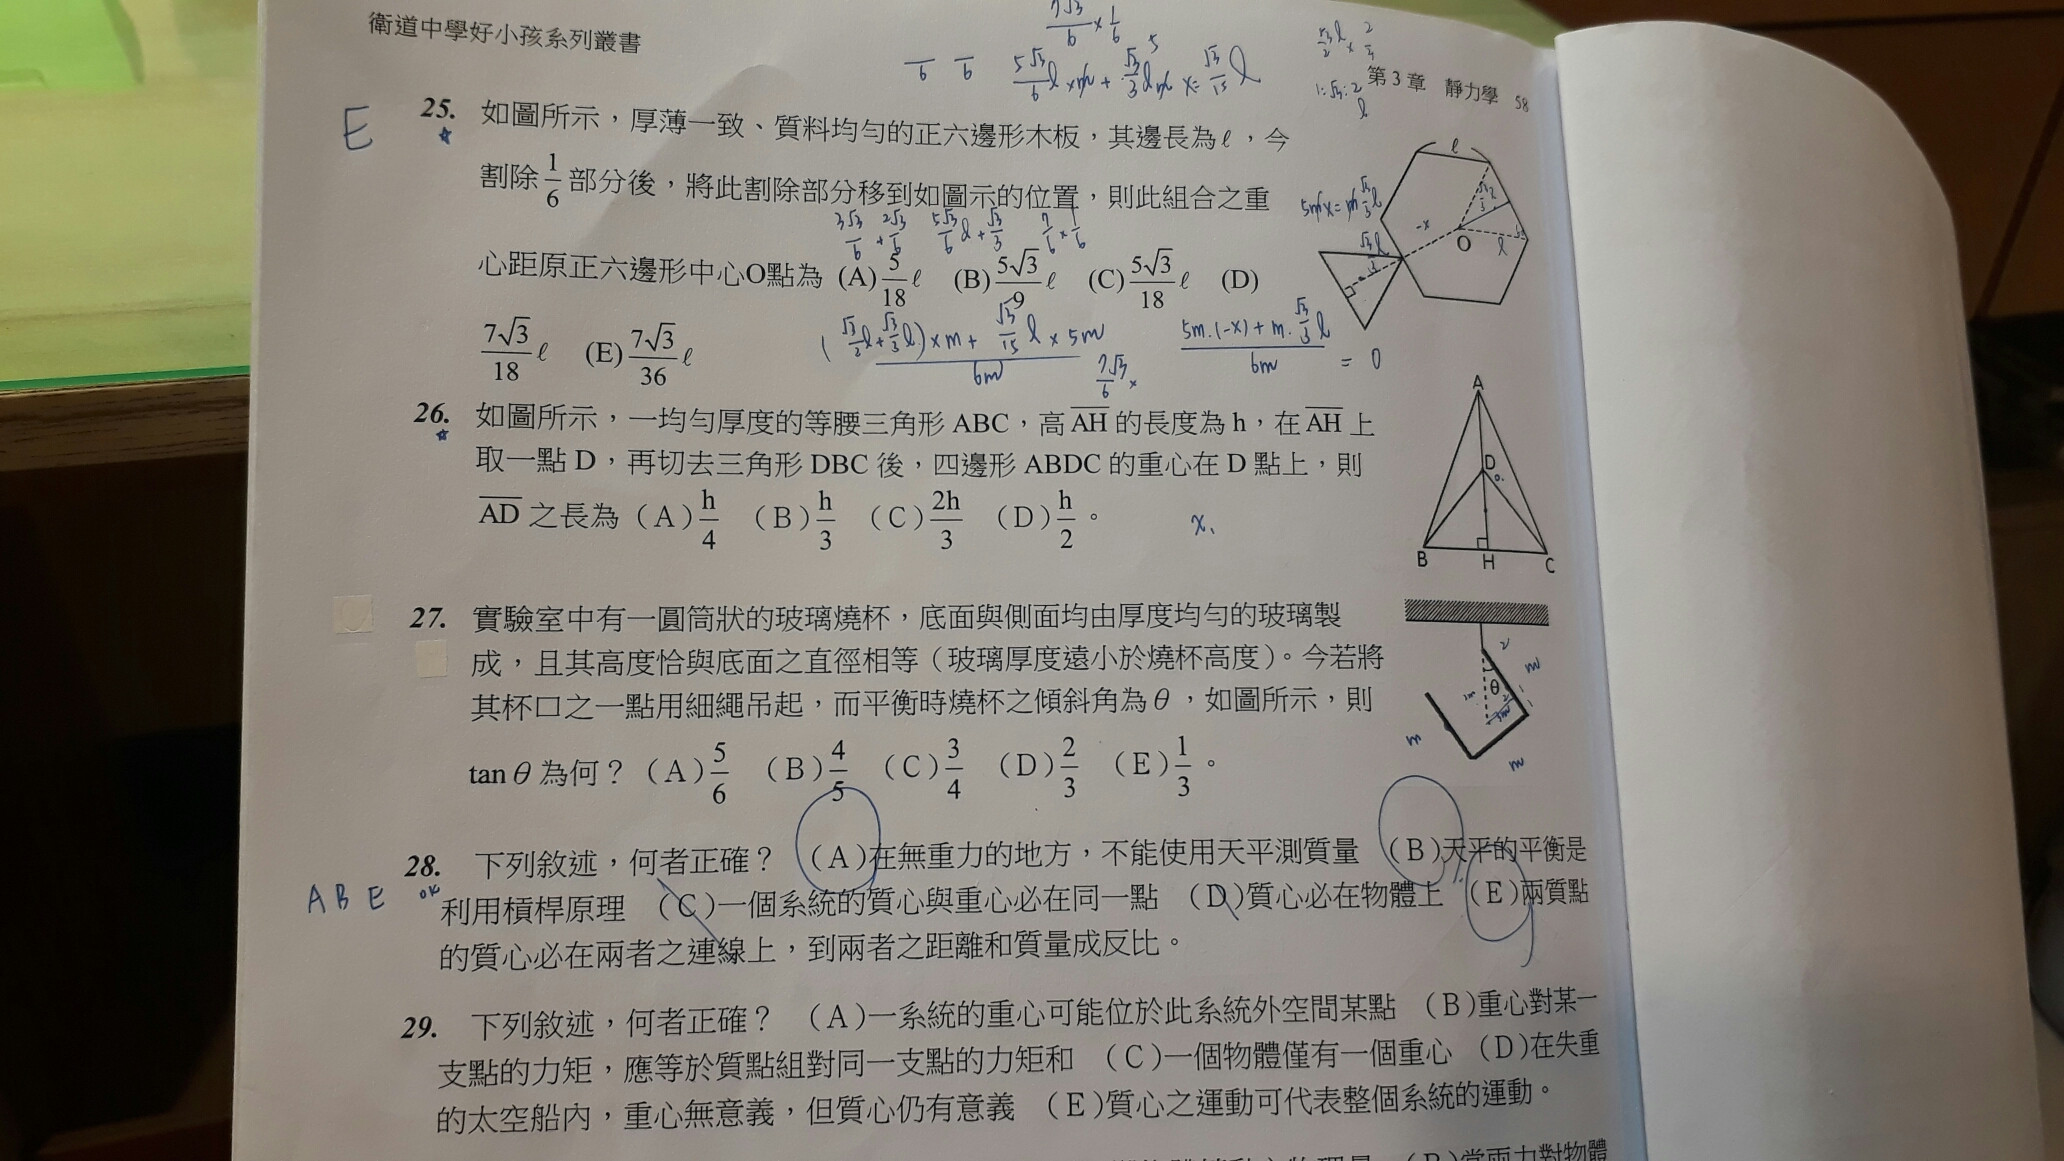 衛道中學好小孩系列叢書
第3章 靜力學 58
E
25. 如圖所示，厚薄一致、質料均勻的正六邊形木板，其邊長為ℓ，今
割除1/6部分後，將此割除部分移到如圖示的位置，則此組合之重
心距原正六邊形中心O點為 (A)5/18 ℓ (B)5√3/9 ℓ (C)5√3/18 ℓ (D)
7√3/18 ℓ (E)7√3/36 ℓ
ℓ
O
26. 如圖所示，一均勻厚度的等腰三角形 ABC，高AH的長度為 h，在AH上
取一點 D，再切去三角形 DBC 後，四邊形 ABDC 的重心在 D 點上，則
AD之長為（A）h/4 （B）h/3 （C）2h/3 （D）h/2。
A
D
B H C
27. 實驗室中有一圓筒狀的玻璃燒杯，底面與側面均由厚度均勻的玻璃製
成，且其高度恰與底面之直徑相等（玻璃厚度遠小於燒杯高度）。今若將
其杯口之一點用細繩吊起，而平衡時燒杯之傾斜角為θ，如圖所示，則
tanθ為何？（A）5/6 （B）4/5 （C）3/4 （D）2/3 （E）1/3。
θ
m
m
m
28. 下列敘述，何者正確？ （A）在無重力的地方，不能使用天平測質量 （B）天平的平衡是
A B E ok 利用槓桿原理 （C）一個系統的質心與重心必在同一點 （D）質心必在物體上 （E）兩質點
的質心必在兩者之連線上，到兩者之距離和質量成反比。
29. 下列敘述，何者正確？ （A）一系統的重心可能位於此系統外空間某點 （B）重心對某一
支點的力矩，應等於質點組對同一支點的力矩和 （C）一個物體僅有一個重心 （D）在失重
的太空船內，重心無意義，但質心仍有意義 （E）質心之運動可代表整個系統的運動。